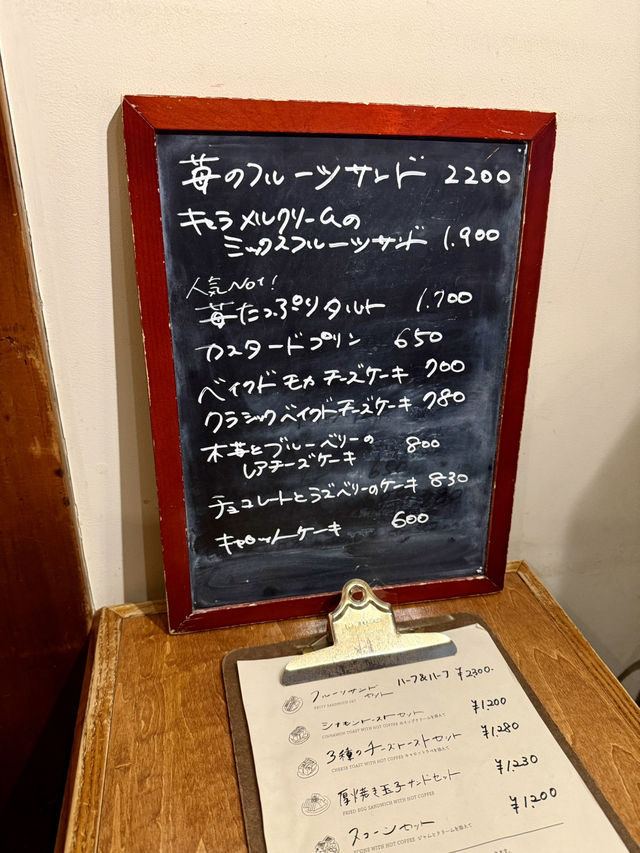 苺のフルーツサンド 2200
キャラメルクリームの
ミックスフルーツサンド 1.900
人気No1!
苺たっぷりタルト 1.700
カスタードプリン 650
ベイクドモカチーズケーキ 700
クラシックベイクドチーズケーキ 780
木苺とブルーベリーの
レアチーズケーキ 800
チョコレートとラズベリーのケーキ 830
キャロットケーキ 600
フルーツサンドセット ハーフ&ハーフ ¥2300.
FRUITS SANDWICH SET
シナモントーストセット ¥1.200
CINNAMON TOAST WITH HOT COFFEE ホイップクリームを添えて
3種のチーズトーストセット ¥1.280
CHEESE TOAST WITH HOT COFFEE キャロットラペを添えて
厚焼き玉子サンドセット ¥1.230
FRIED EGG SANDWICH WITH HOT COFFEE
スコーンセット ¥1.200
SCONE WITH HOT COFFEE ジャムとクリームを添えて